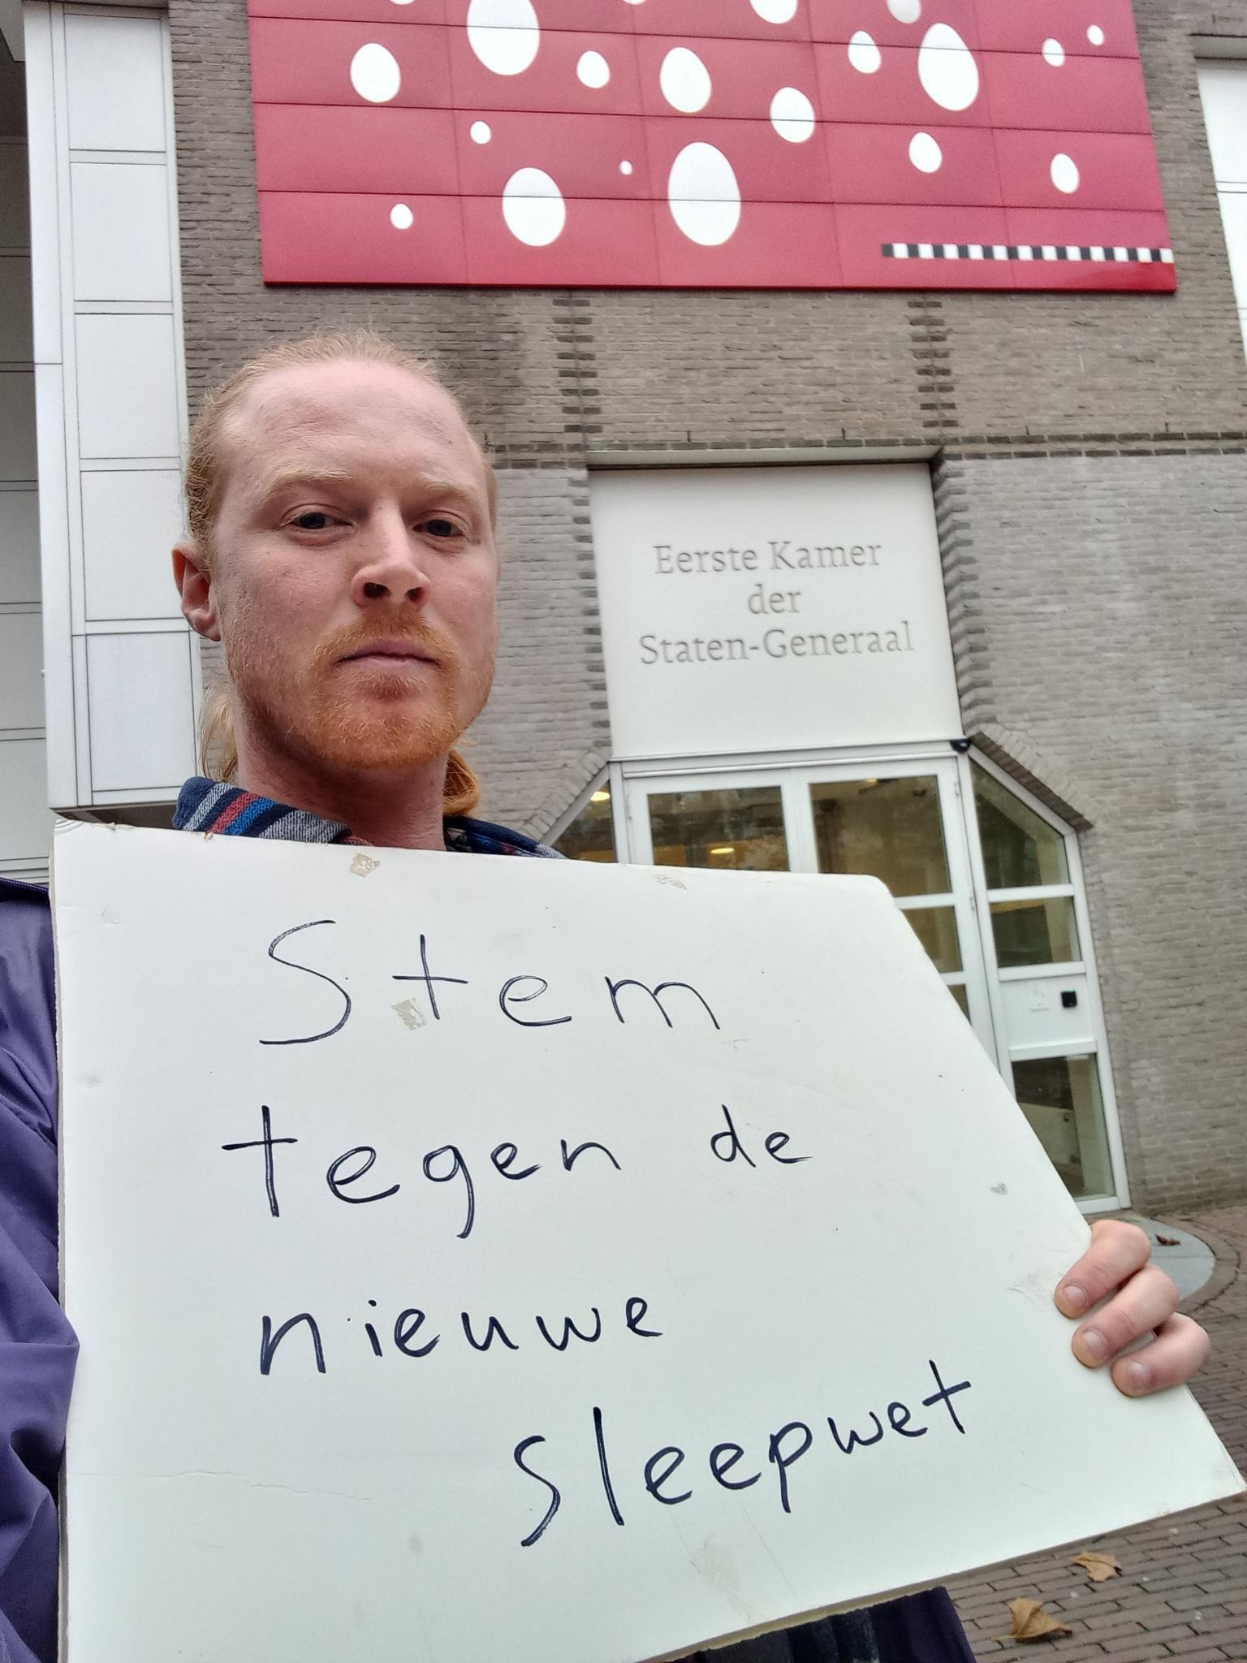 Eerste Kamer
der
Staten-Generaal
Stem
tegen de
nieuwe
sleepwet